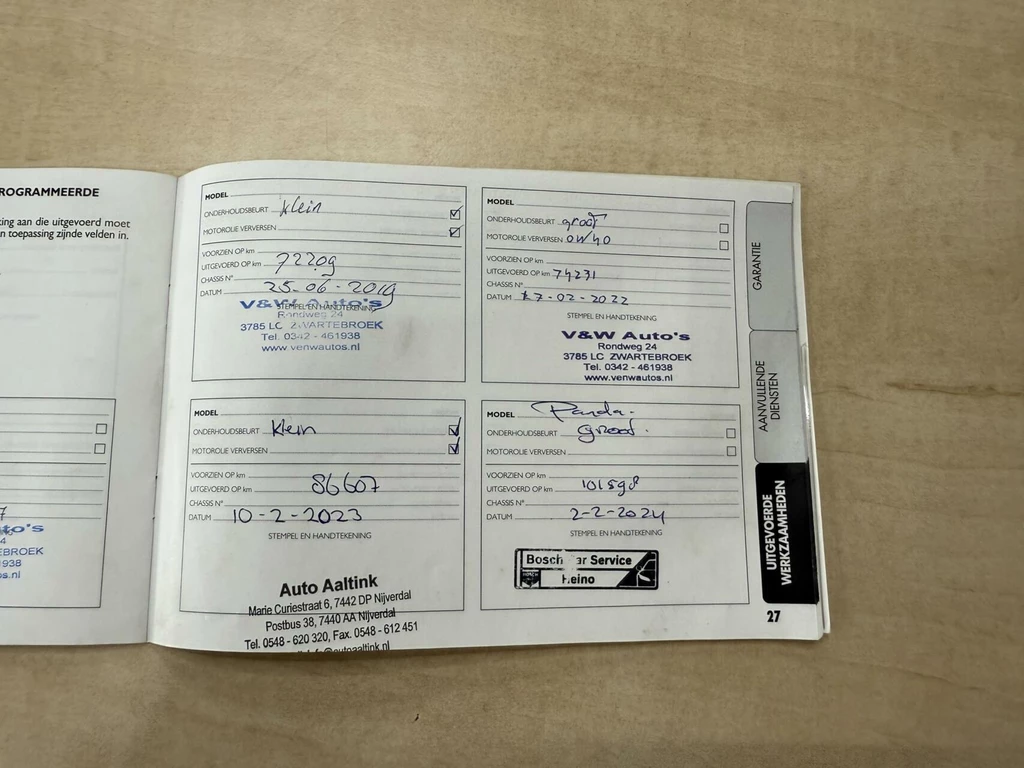 ROGRAMMEERDE
ing aan die uitgevoerd moet
n toepassing zijnde velden in.
7
to's
4
OEK
1938
s.nl
MODEL
ONDERHOUDSBEURT Klein
MOTOROLIE VERVERSEN
VOORZIEN OP km
UITGEVOERD OP km 72209
CHASSIS N°
DATUM 25-06-2019
STEMPEL EN HANDTEKENING
V&W Auto's
Rondweg 24
3785 LC ZWARTEBROEK
Tel. 0342 - 461938
www.venwautos.nl
MODEL
ONDERHOUDSBEURT groot
MOTOROLIE VERVERSEN 0W40
VOORZIEN OP km
UITGEVOERD OP km 74231
CHASSIS N°
DATUM 17-02-2022
STEMPEL EN HANDTEKENING
V&W Auto's
Rondweg 24
3785 LC ZWARTEBROEK
Tel. 0342 - 461938
www.venwautos.nl
MODEL
ONDERHOUDSBEURT Klein
MOTOROLIE VERVERSEN
VOORZIEN OP km
UITGEVOERD OP km 86607
CHASSIS N°
DATUM 10-2-2023
STEMPEL EN HANDTEKENING
Auto Aaltink
Marie Curiestraat 6, 7442 DP Nijverdal
Postbus 38, 7440 AA Nijverdal
Tel. 0548 - 620 320, Fax. 0548 - 612 451
@autoaaltink.nl
MODEL Panda.
ONDERHOUDSBEURT groot.
MOTOROLIE VERVERSEN
VOORZIEN OP km
UITGEVOERD OP km 101598
CHASSIS N°
DATUM 2-2-2024
STEMPEL EN HANDTEKENING
Bosch ar Service
Heino
GARANTIE
AANVULLENDE
DIENSTEN
UITGEVOERDE
WERKZAAMHEDEN
27